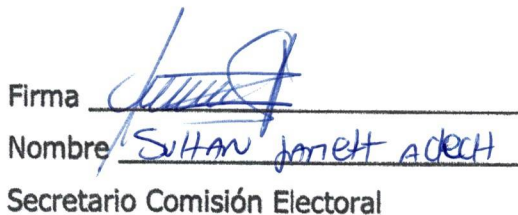 Firma
Nombre SUHAN JAMETT ADECH
Secretario Comisión Electoral